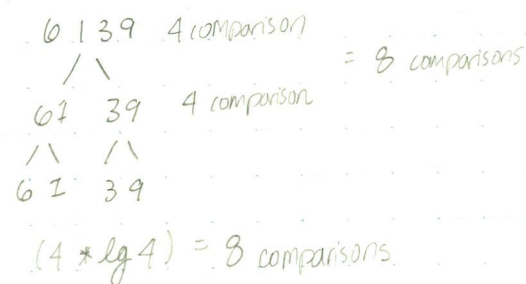 6 1 3 9 4 comparison
= 8 comparisons
61 39 4 comparison
6 1 3 9
(4 * lg 4) = 8 comparisons